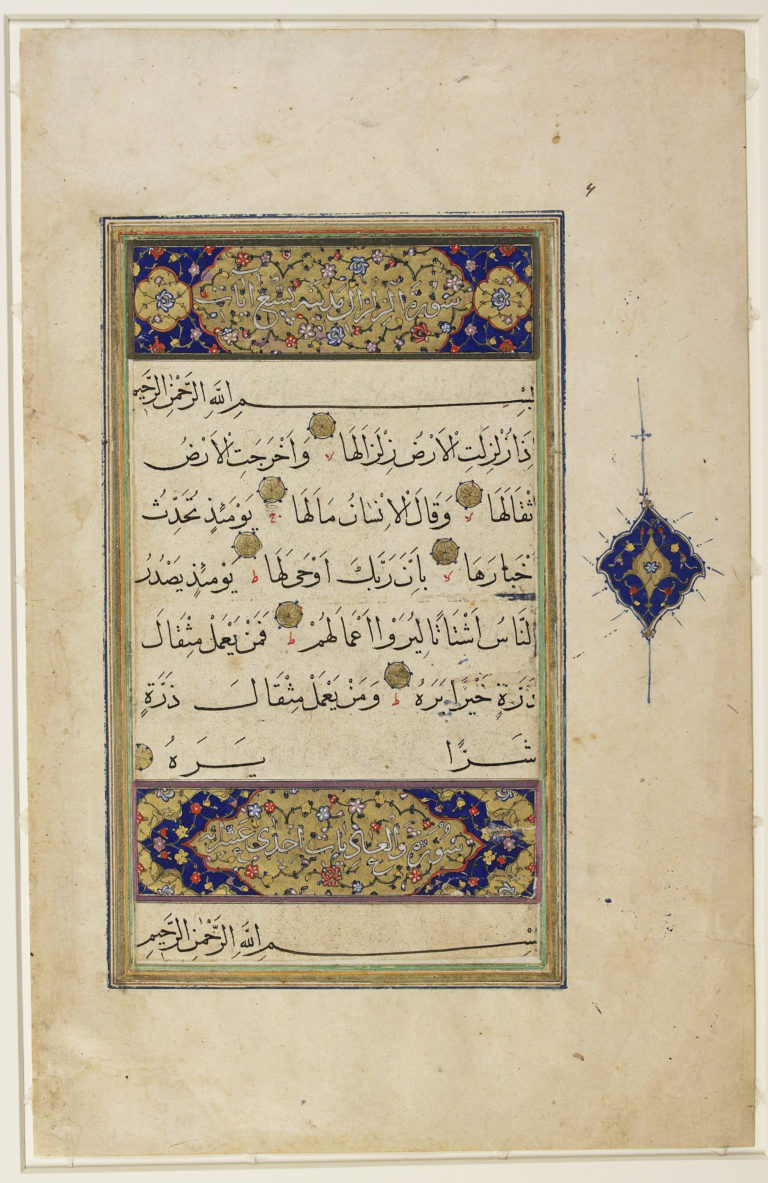 ۶
سورة الزلزال مدنية تسع آيات
بسم الله الرحمن الرحيم
ذَا زُلْزِلَتِ الْاَرْضُ زِلْزَالَهَا لا وَاَخْرَجَتِ الْاَرْضُ
اَثْقَالَهَا لا وَقَالَ الْاِنْسَانُ مَالَهَا ج يَوْمَئِذٍ تُحَدِّثُ
اَخْبَارَهَا لا بِاَنَّ رَبَّكَ اَوْحٰى لَهَا ط يَوْمَئِذٍ يَصْدُرُ
النَّاسُ اَشْتَاتًا لِيُرَوْا اَعْمَالَهُمْ ط فَمَنْ يَعْمَلْ مِثْقَالَ
ذَرَّةٍ خَيْرًا يَرَهُ ط وَمَنْ يَعْمَلْ مِثْقَالَ ذَرَّةٍ
شَرًّا يَرَهُ
سورة والعاديات احدى عشر
بسم الله الرحمن الرحيم